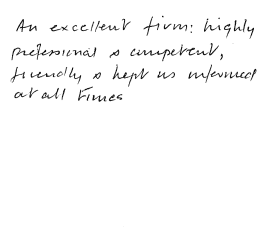 An excellent firm: highly
professional & competent,
friendly & kept us informed
at all times